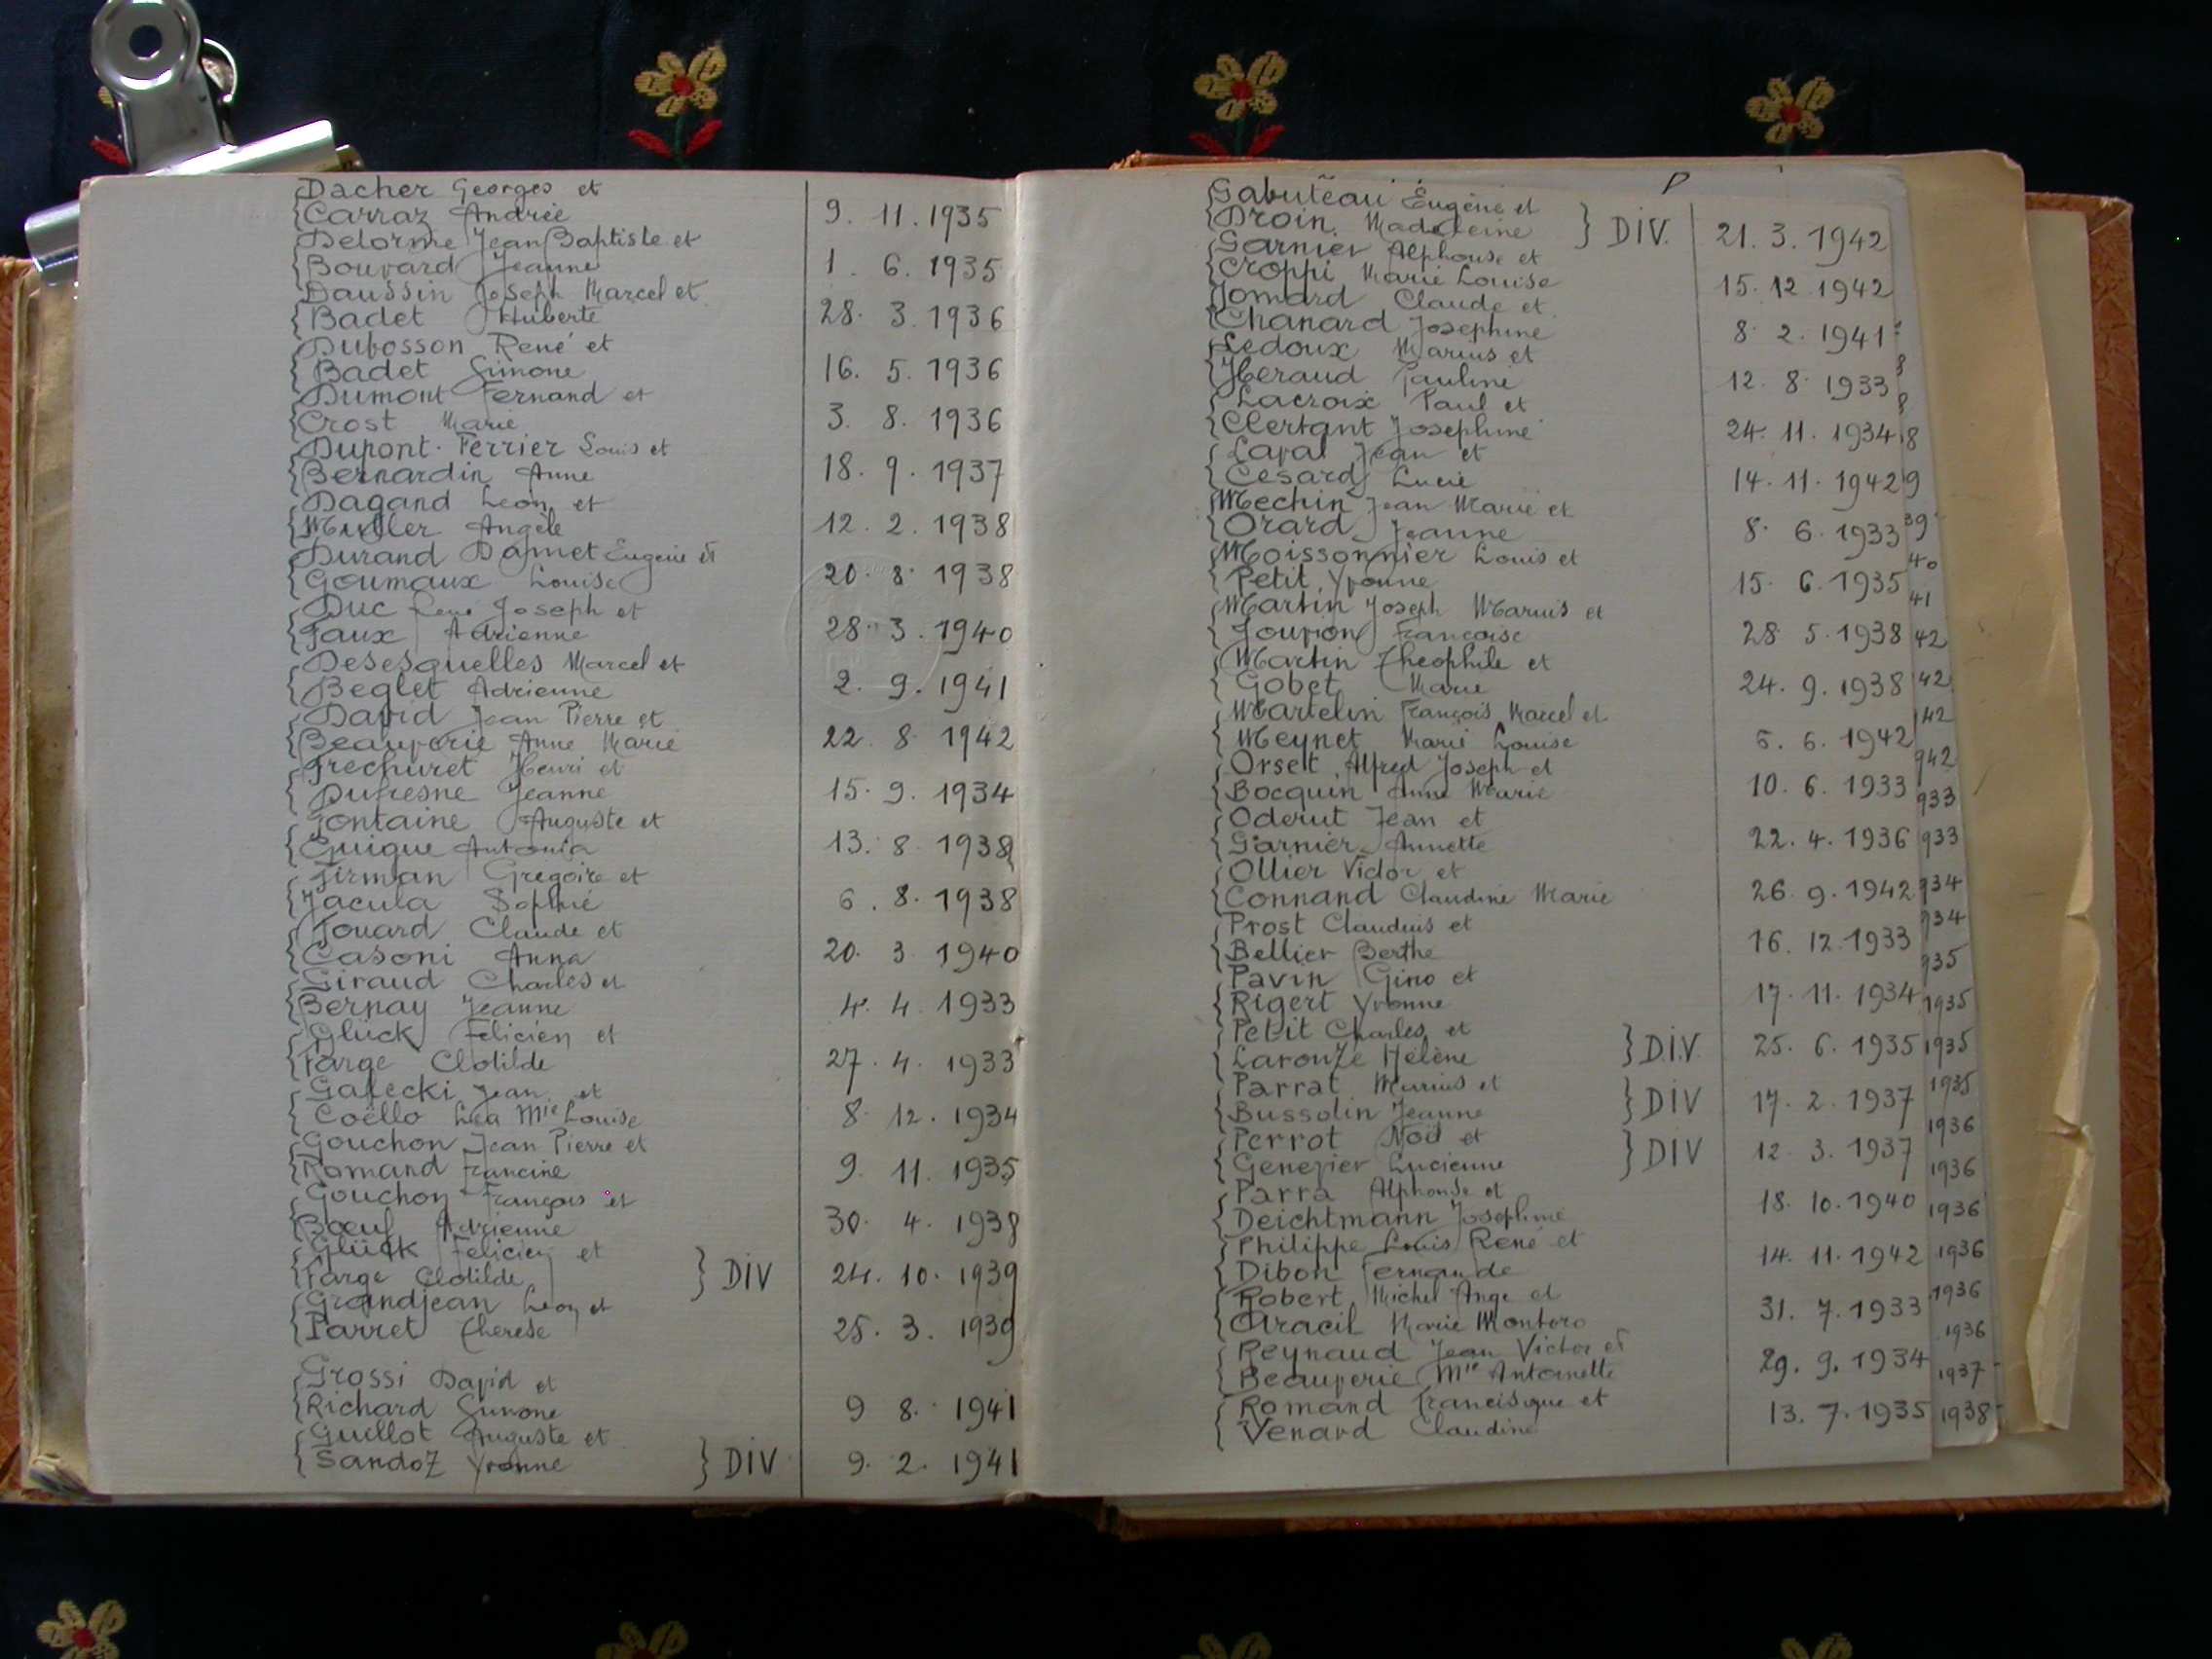 Dacher Georges et
Carraz Andrée 9. 11. 1935
Delorme Jean Baptiste et
Bouvard Jeanne 1. 6. 1935
Daussin Joseph Marcel et
Badet Huberte 28. 3. 1936
Dubosson René et
Badet Simone 16. 5. 1936
Dumont Fernand et
Crost Marie 3. 8. 1936
Dupont-Ferrier Louis et
Bernardin Anne 18. 9. 1937
Dagand Leon et
Muller Angèle 12. 2. 1938
Durand Damet Eugene et
Goumaux Louise 20. 8. 1938
Duc René Joseph et
Faux Adrienne 28. 3. 1940
Desesquelles Marcel et
Beglet Adrienne 2. 9. 1941
David Jean Pierre et
Beauverie Anne Marie 22. 8. 1942
Frechuret Henri et
Dufresne Jeanne 15. 9. 1934
Fontaine Auguste et
Guigue Antonia 13. 8. 1938
Firman Gregoire et
Jacula Sophie 6. 8. 1938
Fouard Claude et
Casoni Anna 20. 3. 1940
Giraud Charles et
Bernay Jeanne 4. 4. 1933
Glück Félicien et
Farge Clotilde 27. 4. 1933
Galecki Jean et
Coëllo Léa Mie Louise 8. 12. 1934
Gouchon Jean Pierre et
Romand Francine 9. 11. 1935
Gouchon François et
Bœuf Adrienne 30. 4. 1938
Glück Felicien et
Farge Clotilde } DIV 24. 10. 1939
Grandjean Leon et
Parret Therese 25. 3. 1939
Grossi David et
Richard Simone 9. 8. 1941
Guillot Auguste et
Sandoz Yvonne } DIV 9. 2. 1941
P
Gabuteau Eugène et
Droin Madeleine } DIV. 21. 3. 1942
Garnier Alphonse et
Croppi Marie Louise 15. 12. 1942
Jomard Claude et
Chanard Josephine 8. 2. 1941
Ledoux Marius et
Heraud Pauline 12. 8. 1933
Lacroix Paul et
Clertant Josephine 24. 11. 1934 8
Laval Jean et
Cesard Lucie 14. 11. 1942 9
Mechin Jean Marie et
Orard Jeanne 8. 6. 1933 39
Moissonnier Louis et 40
Petit Yvonne 15. 6. 1935 41
Martin Joseph Marius et
Jouvion Françoise 28. 5. 1938 42
Martin Theophile et
Gobet Marie 24. 9. 1938 42
Martelin François Marcel et 42
Meynet Marie Louise 5. 6. 1942
Orset Alfred Joseph et 942
Bocquin Anne Marie 10. 6. 1933 933
Oderut Jean et
Garnier Annette 22. 4. 1936 933
Ollier Victor et
Connand Claudine Marie 26. 9. 1942 934
Prost Claudius et 934
Bellier Berthe 16. 12. 1933 935
Pavin Gino et
Rigert Yvonne 17. 11. 1934 1935
Petit Charles et
Laronze Hélène } D.I.V. 25. 6. 1935 1935
Parrat Marius et 1935
Bussolin Jeanne } DIV 17. 2. 1937 1936
Perrot Noël et
Genevier Lucienne } DIV 12. 3. 1937 1936
Parra Alphonse et
Deichtmann Josephine 18. 10. 1940 1936
Philippe Louis René et
Dibon Fernande 14. 11. 1942 1936
Robert Michel Ange et 1936
Aracil Marie Montoro 31. 7. 1933 1936
Reynaud Jean Victor et
Beauverie Mie Antoinette 29. 9. 1934 1937
Romand Francisque et
Venard Claudine 13. 7. 1935 1938